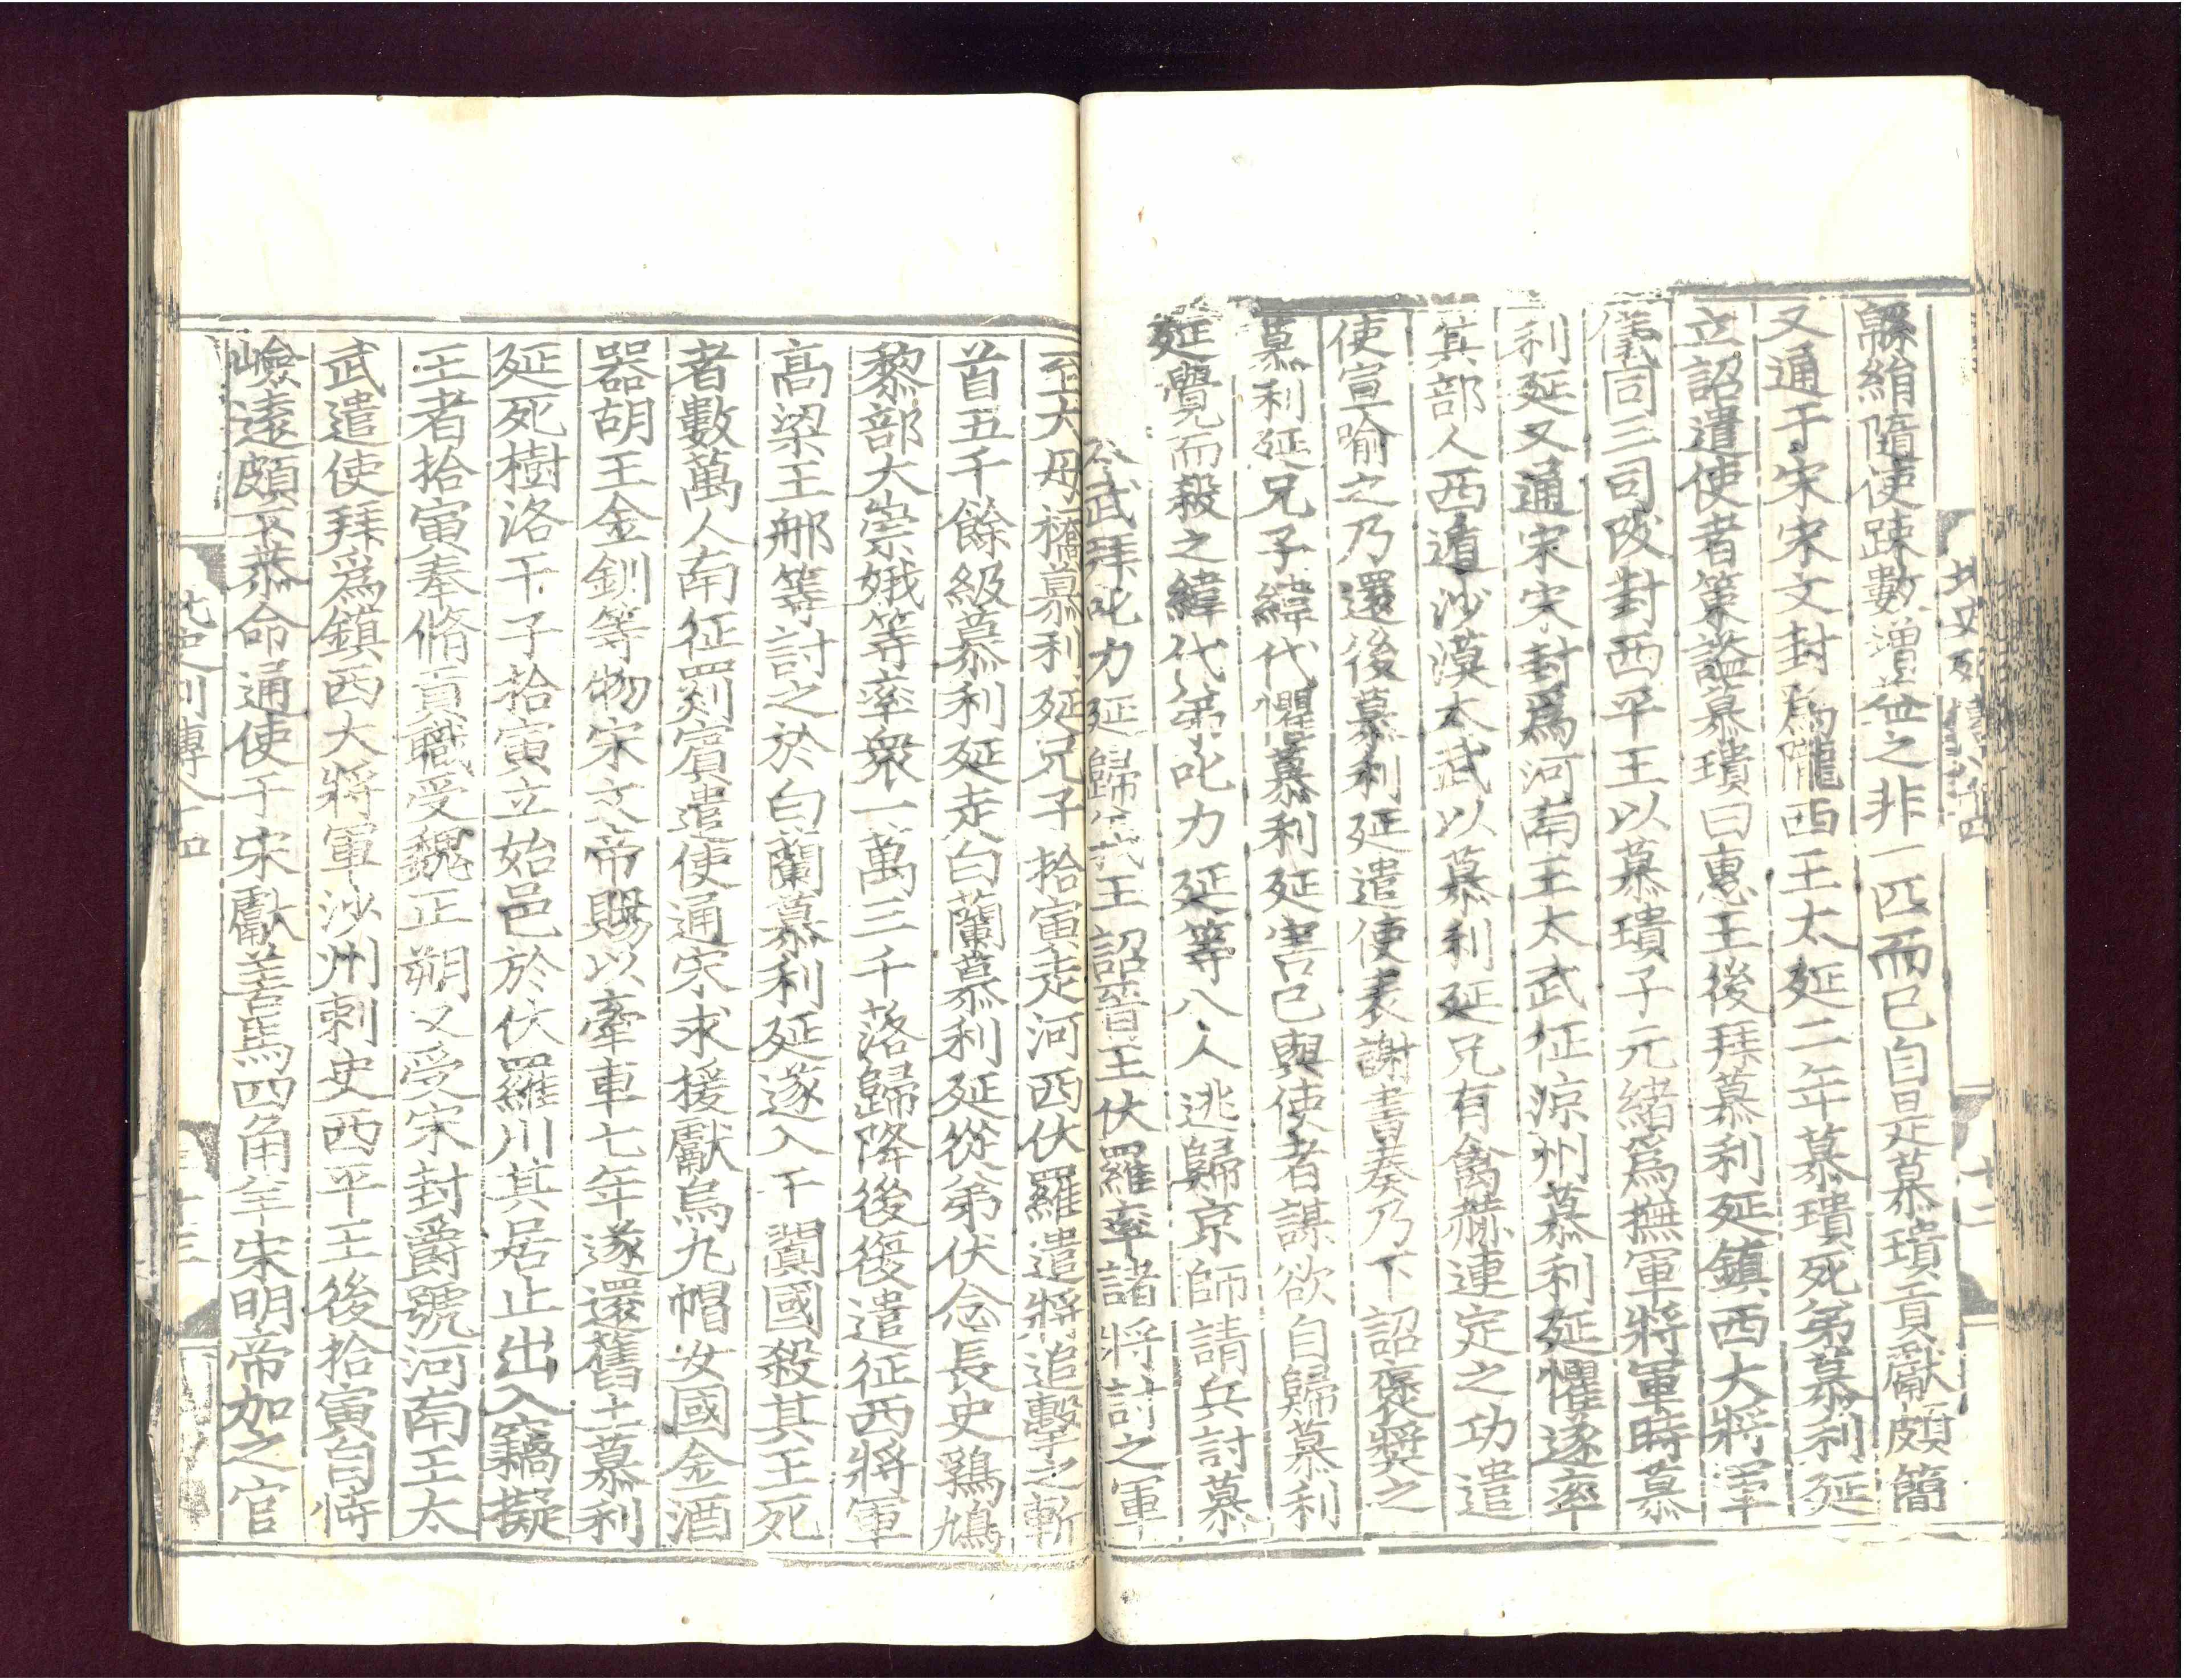 北史列傳八十四
十二
緜絹隨使疎數增益之非一匹而已自是慕璝貢獻頗簡
又通于宋宋文封爲隴西王太延二年慕璝死弟慕利延
立詔遣使者策謚慕璝曰惠王後拜慕利延鎮西大將軍
儀同三司改封西平王以慕璝子元緒爲撫軍將軍時慕
利延又通宋宋封爲河南王太武征涼州慕利延懼遂率
其部人西遁沙漠太武以慕利延兄有禽赫連定之功遣
使宣喻之乃還後慕利延遣使表謝書奏乃下詔襃奬之
慕利延兄子緯代懼慕利延害己與使者謀欲自歸慕利
延覺而殺之緯代弟叱力延等八人逃歸京師請兵討慕
太武拜叱力延歸義王詔晉王伏羅率諸將討之軍
至大母橋慕利延兄子拾寅走河西伏羅遣將追擊之斬
首五千餘級慕利延走白蘭慕利延從弟伏念長史鶏鳩
黎部大崇娥等率衆一萬三千落歸降後復遣征西將軍
高梁王那等討之於白蘭慕利延遂入于闐國殺其王死
者數萬人南征罽賓遣使通宋求援獻烏丸帽女國金酒
器胡王金釧等物宋文帝賜以牽車七年遂還舊土慕利
延死樹洛干子拾寅立始邑於伏羅川其居止出入竊擬
王者拾寅奉脩貢職受魏正朔又受宋封爵號河南王太
武遣使拜爲鎮西大將軍沙州刺史西平王後拾寅自恃
嶮遠頗不恭命通使于宋獻善馬四角羊宋明帝加之官
北史列傳八十四
十三